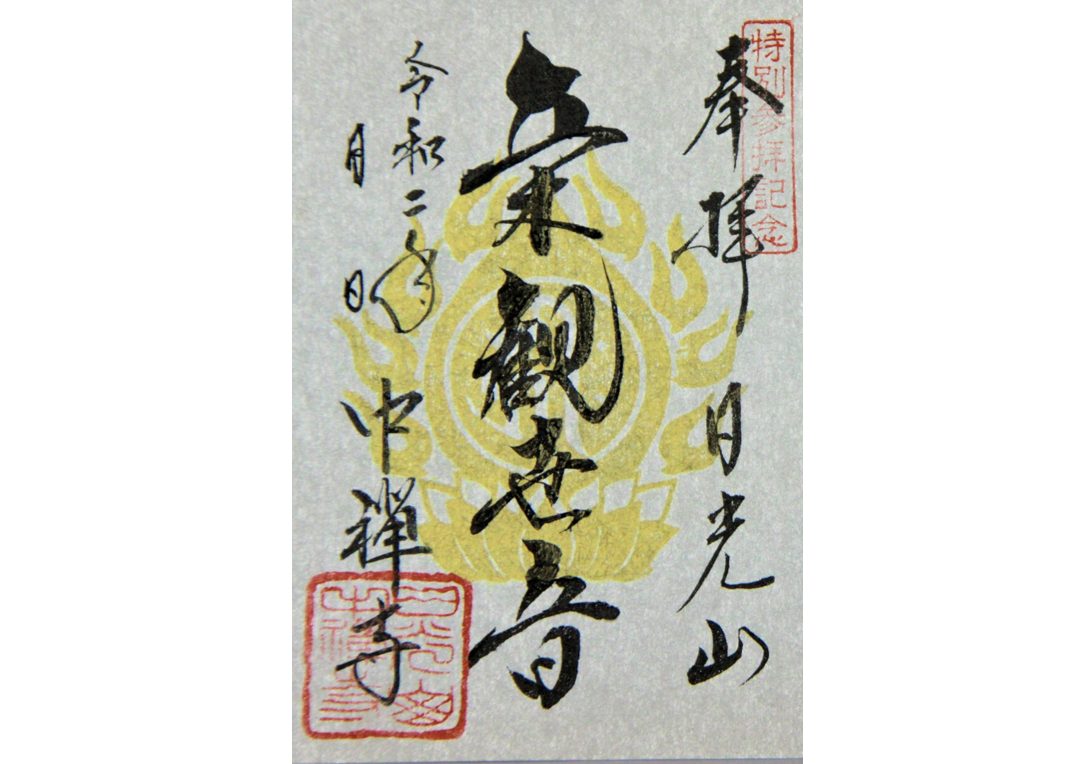 特別参拝記念
奉拝 日光山
立木観世音
令和二年
月 日 中禅寺